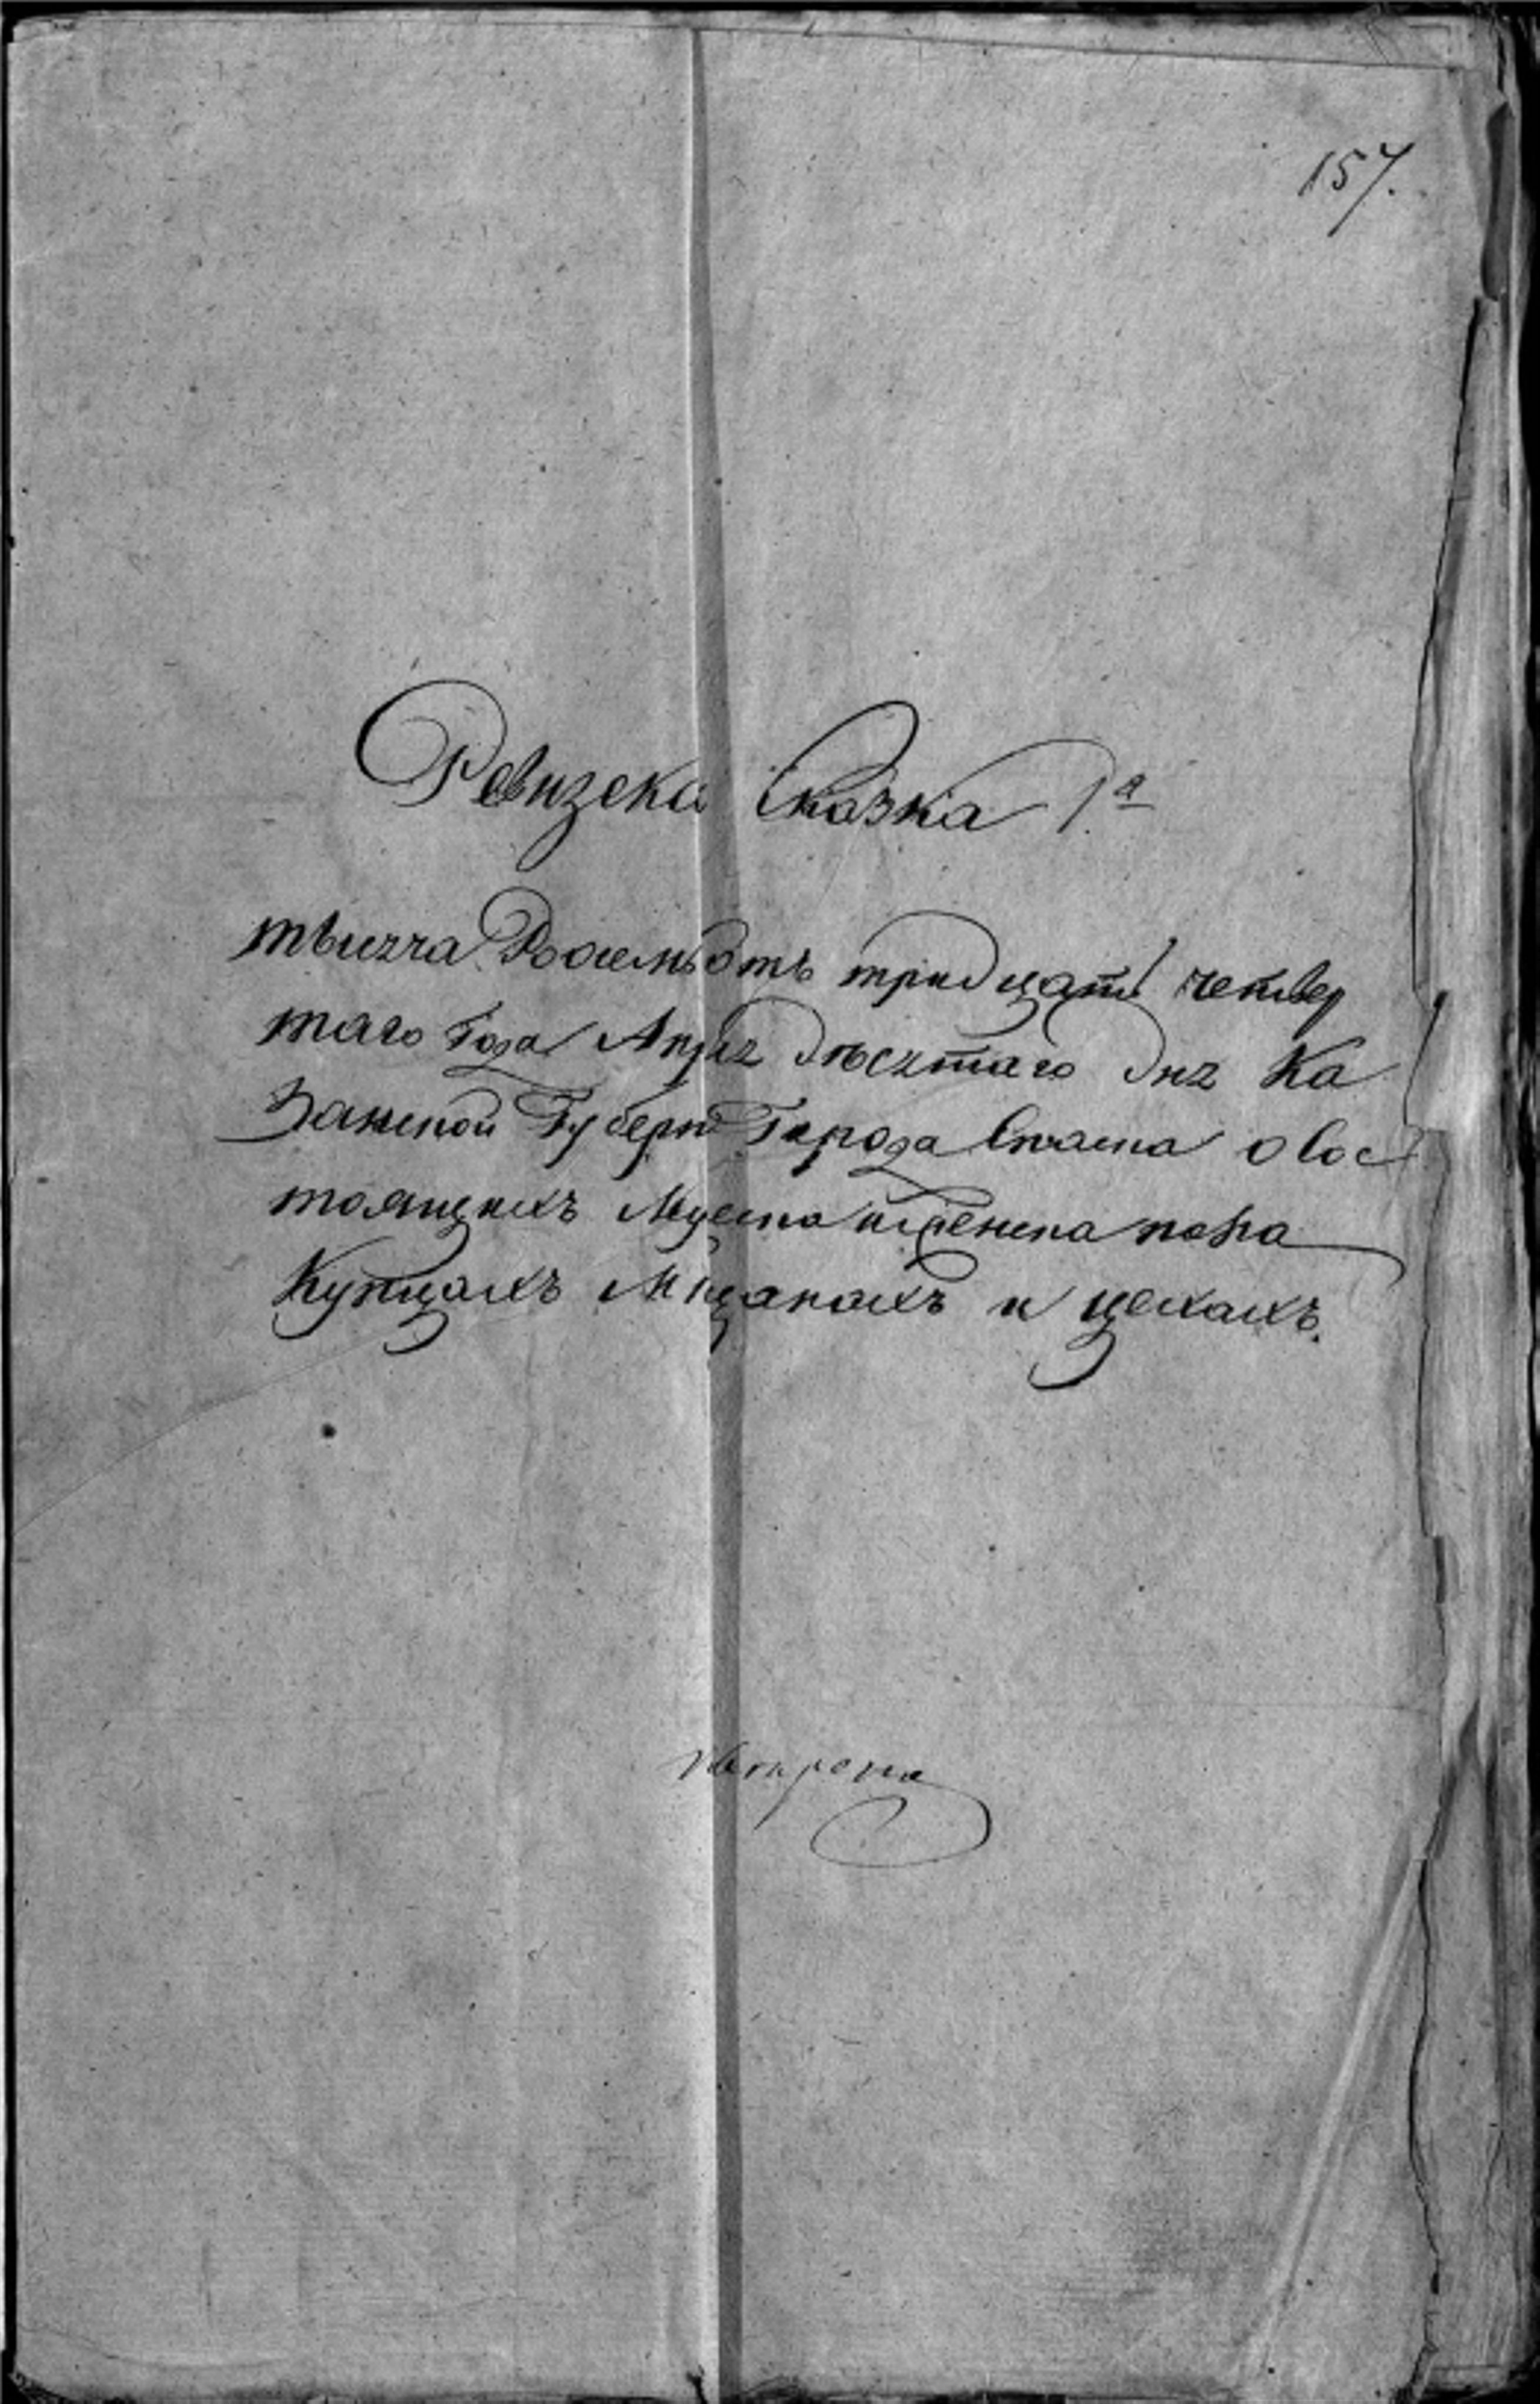 157.
Ревизска Сказка 1.а
тысяча Восемьсотъ тридцать четвер
таго Года Апреля десятаго дня Ка
Занской Губерніи Города Спасска о Сос
тоящихъ мужеска и женска пола
Купцахъ Мещанахъ и цехахъ.